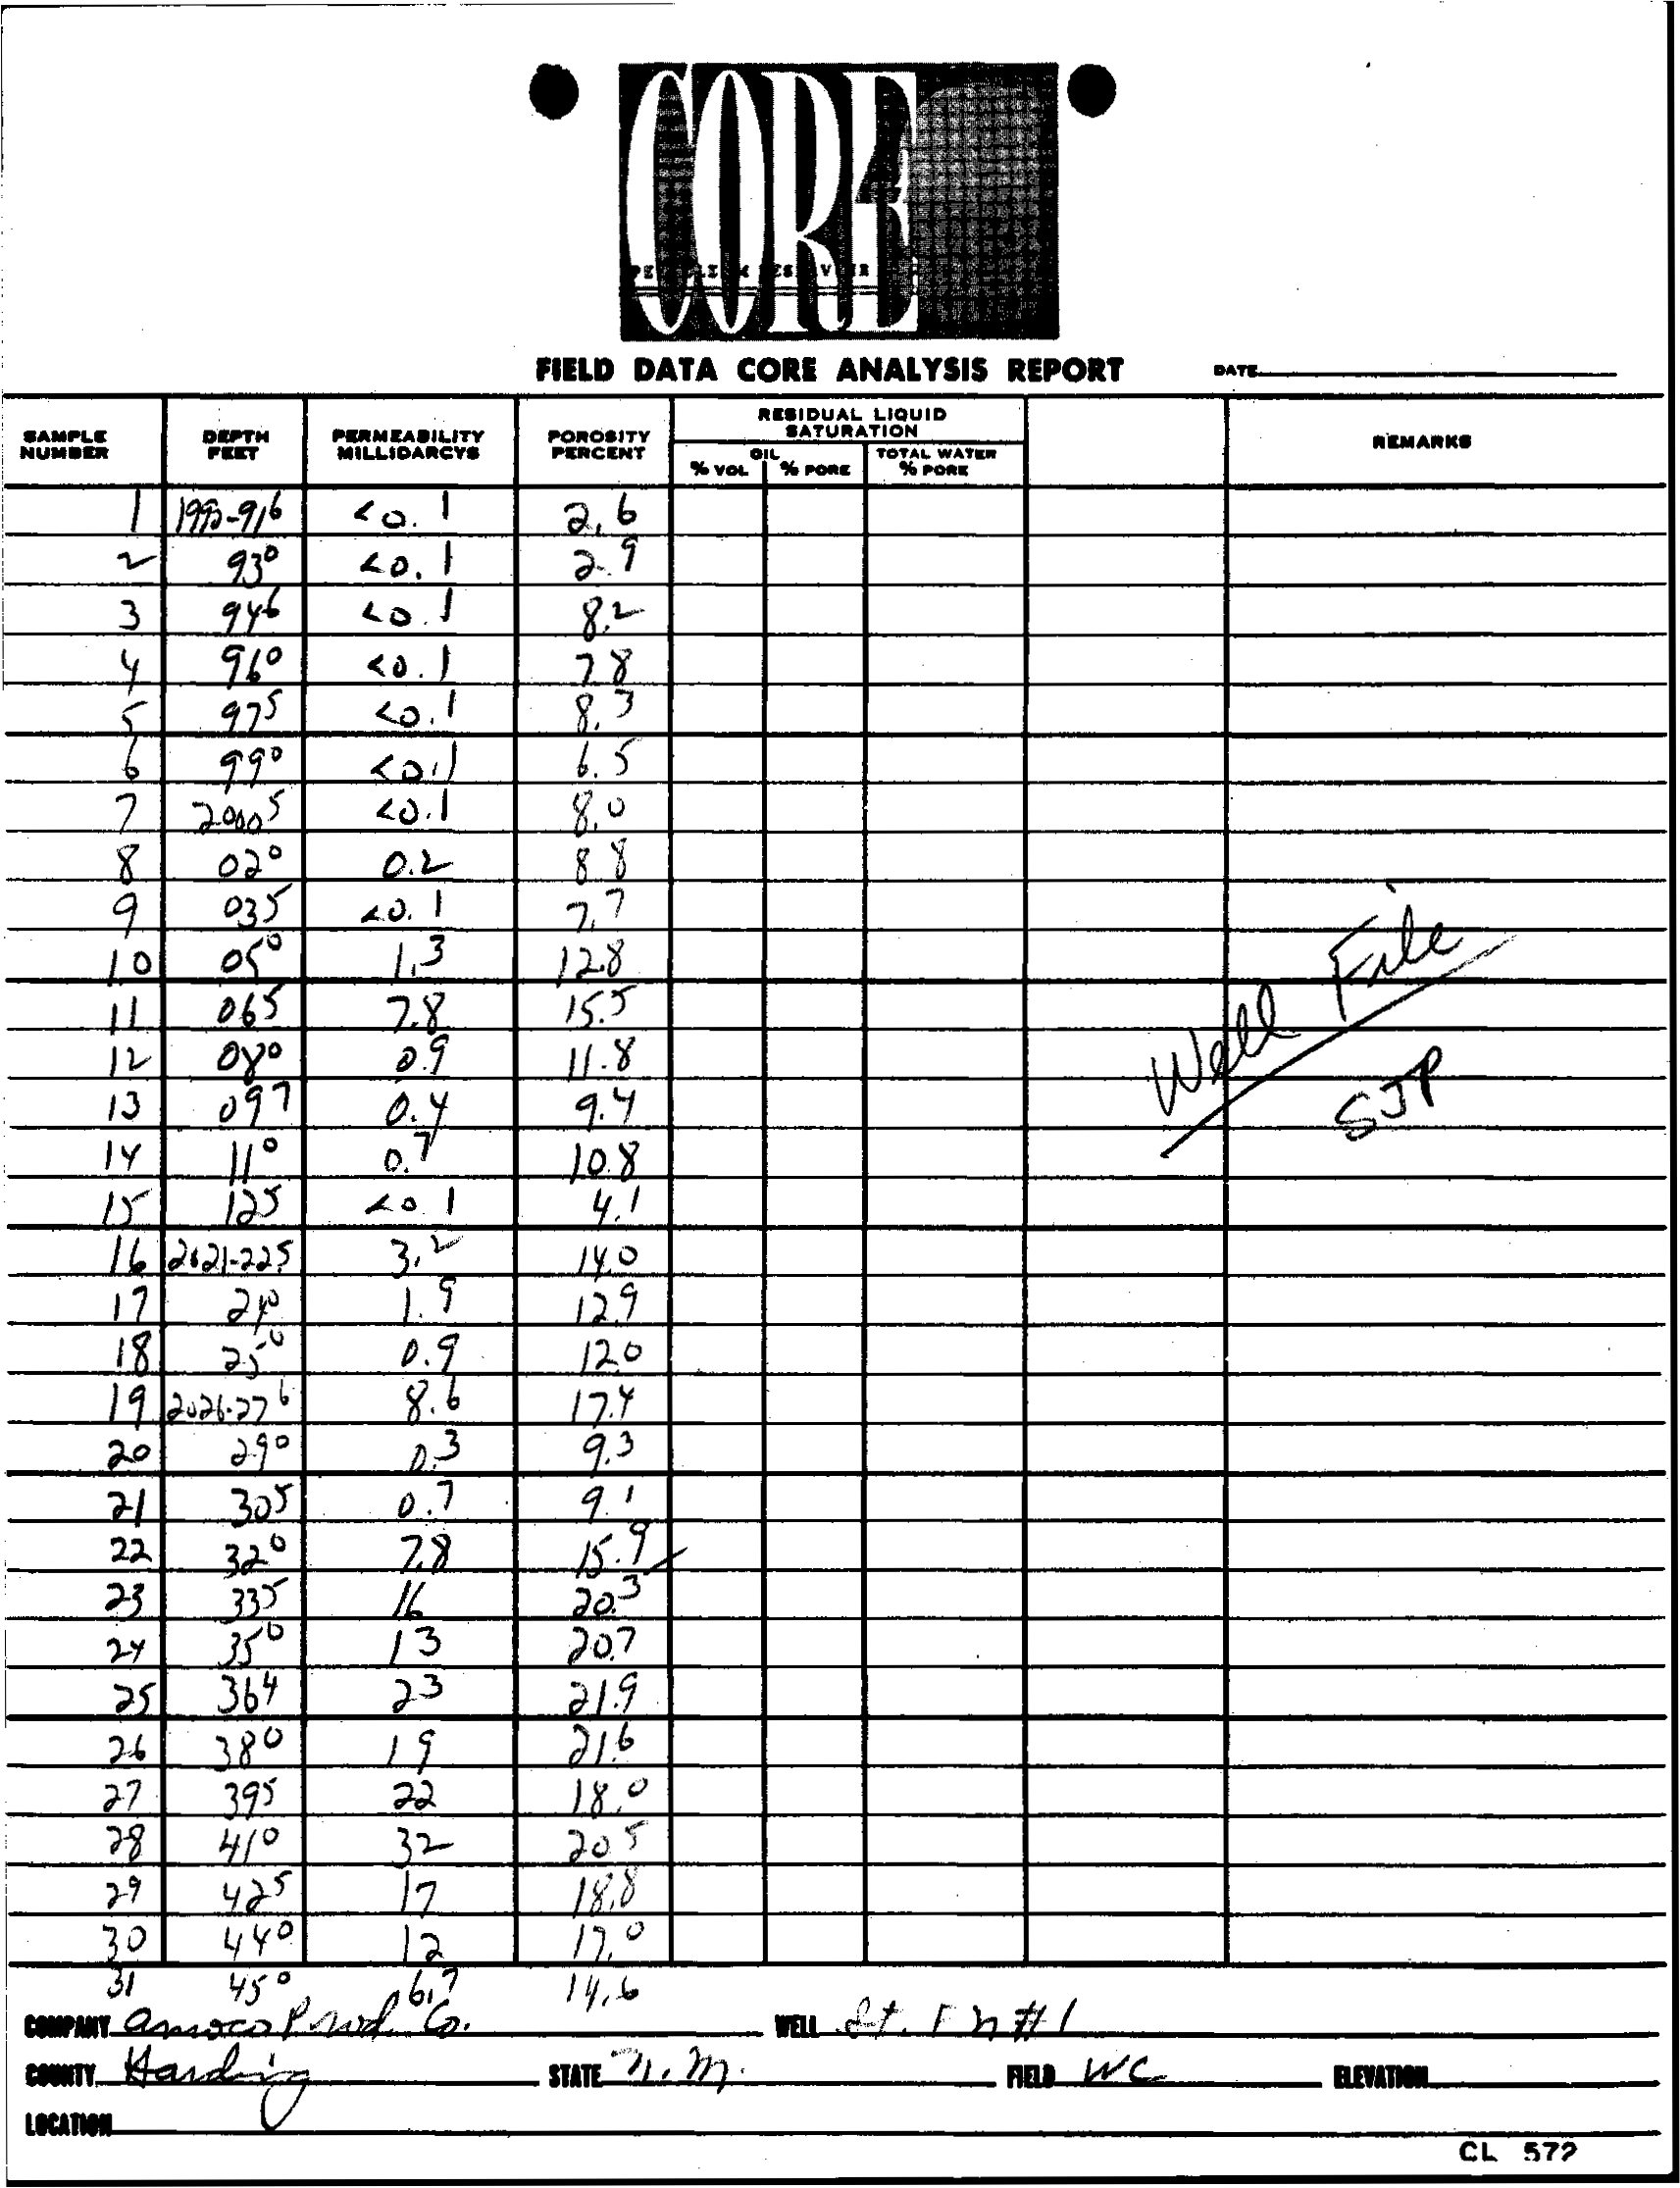 CORE
FIELD DATA CORE ANALYSIS REPORT DATE
SAMPLE NUMBER DEPTH FEET PERMEABILITY MILLIDARCYS POROSITY PERCENT RESIDUAL LIQUID SATURATION OIL % VOL % PORE TOTAL WATER % PORE REMARKS
1 <0.1 2.6
2 93⁰ <0.1 2.9
3 94⁶ <0.1 8.2
4 96⁰ <0.1 7.8
5 97⁵ <0.1 8.3
6 99⁰ <0.1 6.5
7 2000⁵ <0.1 8.0
8 02⁰ 0.2 8.8
9 03⁵ <0.1 7.7
10 05⁰ 1.3 12.8
11 06⁵ 7.8 15.5
12 08⁰ 0.9 11.8
13 09⁷ 0.4 9.4
14 11⁰ 0.7 10.8
15 12⁵ <0.1 4.1
16 2021-22⁵ 3.2 14.0
17 24⁰ 1.9 12.9
18 25⁰ 0.9 12.0
19 2026-27⁶ 8.6 17.4
20 29⁰ 0.3 9.3
21 30⁵ 0.7 9.1
22 32⁰ 7.8 15.9
23 33⁵ 16 20.3
24 35⁰ 13 20.7
25 36⁴ 23 21.9
26 38⁰ 19 21.6
27 39⁵ 22 18.0
28 41⁰ 32 20.5
29 42⁵ 17 18.8
30 44⁰ 12 17.0
31 45⁰ 6.7 14.6
Well File
SJP
COMPANY Amoco Prod. Co. WELL St. #1
COUNTY Harding STATE N.M. FIELD WC ELEVATION
LOCATION
CL 572